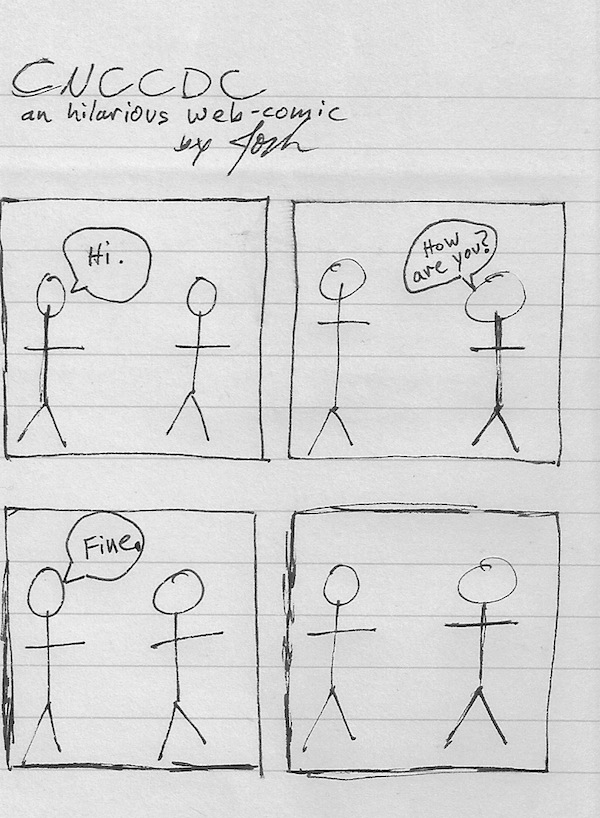 CNCCDC
an hilarious web-comic
by Josh
Hi.
How
are you?
Fine.